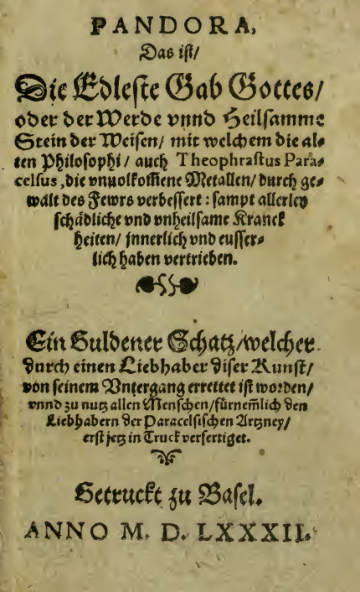 PANDORA,
Das ist/
Die Edleste Gab Gottes/
oder der Werde vnnd Heilsamme
Stein der Weisen/ mit welchem die al-
ten Philosophi/ auch Theophrastus Para-
celsus, die vnuolkom̃ene Metallen/ durch ge-
walt des Fewrs verbessert: sampt allerley
schädliche vnd vnheilsame Kranck
heiten/ jnnerlich vnd eusser-
lich haben vertrieben.
Ein Guldener Schatz/welcher
durch einen Liebhaber diser Kunst/
von seinem Vntergang errettet ist worden/
vnnd zu nutz allen Menschen/fürnem̃lich den
Liebhabern der Paracelsischen Artzney/
erst jetz in Truck verfertiget.
Getruckt zu Basel.
ANNO M. D. LXXXII.